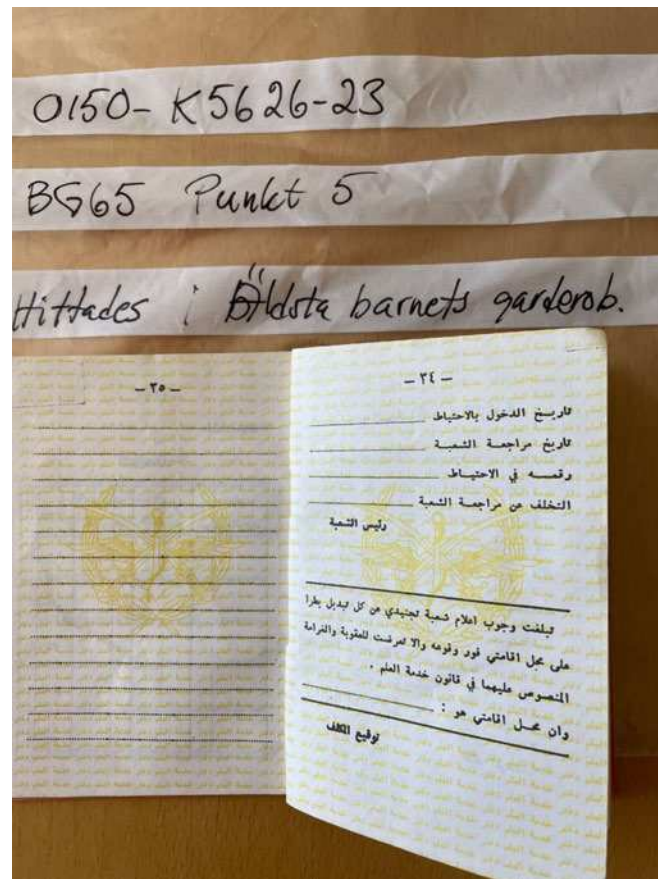 0150-K5626-23
BG65 Punkt 5
Hittades i Äldsta barnets garderob.
- ٣٤ -
تاريخ الدخول بالاحتياط
تاريخ مراجعة الشعبة
رقمه في الاحتياط
التخلف عن مراجعة الشعبة
رئيس الشعبة
تبلغت وجوب اعلام شعبة تجنيدي عن كل تبديل يطرا
على محل اقامتي فور وقوعه والا تعرضت للعقوبة والغرامة
المنصوص عليهما في قانون خدمة العلم .
وان محل اقامتي هو :
توقيع المكلف
- ٣٥ -